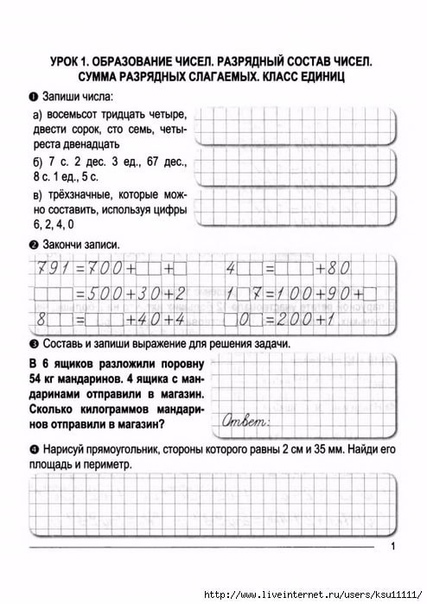 УРОК 1. ОБРАЗОВАНИЕ ЧИСЕЛ. РАЗРЯДНЫЙ СОСТАВ ЧИСЕЛ.
СУММА РАЗРЯДНЫХ СЛАГАЕМЫХ. КЛАСС ЕДИНИЦ
1 Запиши числа:
а) восемьсот тридцать четыре,
двести сорок, сто семь, четы-
реста двенадцать
б) 7 с. 2 дес. 3 ед., 67 дес.,
8 с. 1 ед., 5 с.
в) трёхзначные, которые мож-
но составить, используя цифры
6, 2, 4, 0
2 Закончи записи.
791=700+□□+□ 4□□=□□□+80
□□□=500+30+2 1□7=100+90+□
8□□=□□□+40+4 □0□=200+1
3 Составь и запиши выражение для решения задачи.
В 6 ящиков разложили поровну
54 кг мандаринов. 4 ящика с ман-
даринами отправили в магазин.
Сколько килограммов мандари-
нов отправили в магазин?
Ответ:
4 Нарисуй прямоугольник, стороны которого равны 2 см и 35 мм. Найди его
площадь и периметр.
1
http://www.liveinternet.ru/users/ksu11111/